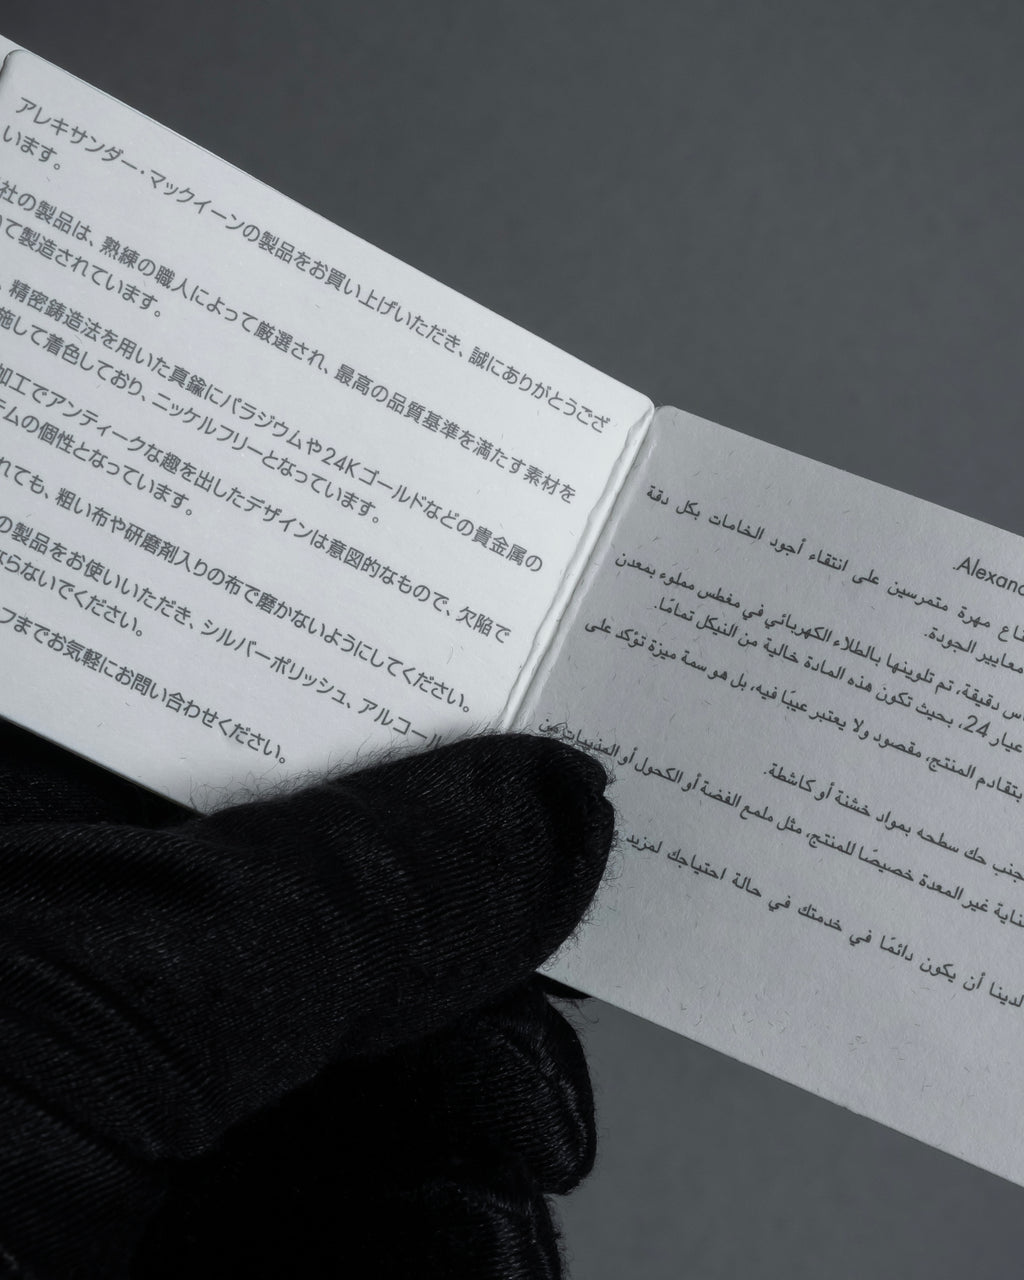 アレキサンダー・マックイーンの製品をお買い上げいただき、誠にありがとうござ
います。
社の製品は、熟練の職人によって厳選され、最高の品質基準を満たす素材を
て製造されています。
、精密鋳造法を用いた真鍮にパラジウムや24Kゴールドなどの貴金属の
施して着色しており、ニッケルフリーとなっています。
加工でアンティークな趣を出したデザインは意図的なもので、欠陥で
テムの個性となっています。
れても、粗い布や研磨剤入りの布で磨かないようにしてください。
の製品をお使いいただき、シルバーポリッシュ、アルコール
ならないでください。
フまでお気軽にお問い合わせください。
Alexand
ع مهرة متمرسين على انتقاء أجود الخامات بكل دقة
معايير الجودة.
س دقيقة، تم تلوينها بالطلاء الكهربائي في مغطس مملوء بمعدن
عيار 24، بحيث تكون هذه المادة خالية من النيكل تمامًا.
بتقادم المنتج، مقصود ولا يعتبر عيبًا فيه، بل هو سمة ميزة تؤكد على
جنب حك سطحه بمواد خشنة أو كاشطة.
عناية غير المعدة خصيصًا للمنتج، مثل ملمع الفضة أو الكحول أو المذيبات من
لدينا أن يكون دائمًا في خدمتك في حالة احتياجك لمزيد